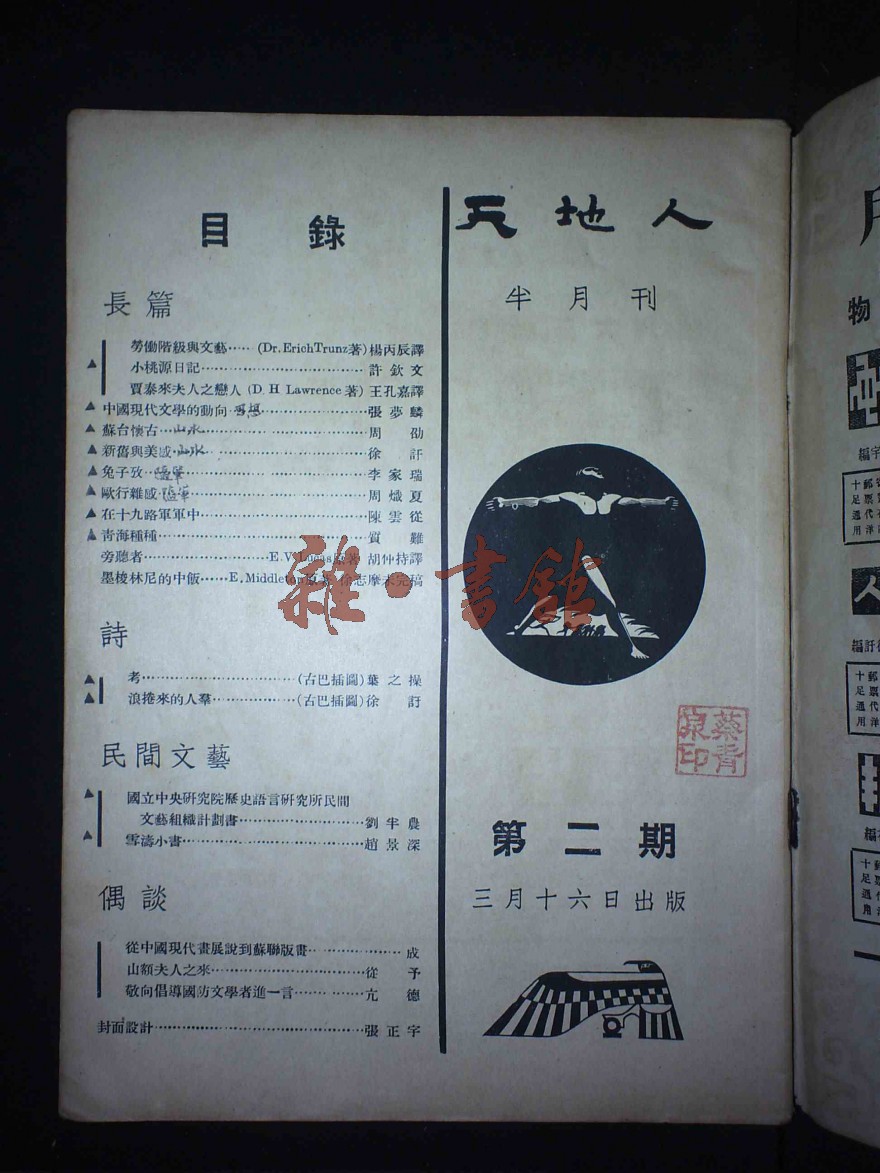 目錄
長篇
勞働階級與文藝……(Dr. Erich Trunz著)楊丙辰譯
▲小桃源日記……許欽文
賈泰來夫人之戀人(D. H Lawrence著)王孔嘉譯
▲中國現代文學的動向……張夢麟
▲蘇台懷古…山水…周劭
▲新舊與美感…山水…徐訏
▲兔子攷…李家瑞
▲歐行雜感…周熾夏
▲在十九路軍軍中……陳雲從
▲青海種種……質難
旁聽者……E. V. 胡仲持譯
墨梭林尼的中飯……E. Middleton 徐志摩未完稿
詩
▲考……(古巴插圖)葉之操
▲浪捲來的人羣……(古巴插圖)徐訏
民間文藝
▲國立中央研究院歷史語言研究所民間
文藝組織計劃書……劉半農
▲雪濤小書……趙景深
偶談
從中國現代畫展說到蘇聯版畫……成
山額夫人之來……從予
敬向倡導國防文學者進一言……亢德
封面設計……張正宇
天地人
半月刊
蔡青泉印
第二期
三月十六日出版
雜·書館
物
人